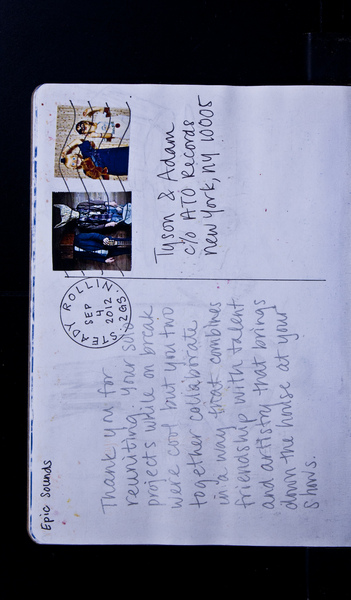 Epic Sounds
Thank you for
reuniting. Your solo
projects while on break
were cool but you two
together collaborate
in a way that combines
friendship with talent
and artistry that brings
down the house at your
shows.
STEADY ROLLIN'
SEP
4
2012
285
Tyson & Adam
c/o ATO Records
New York, NY 10005